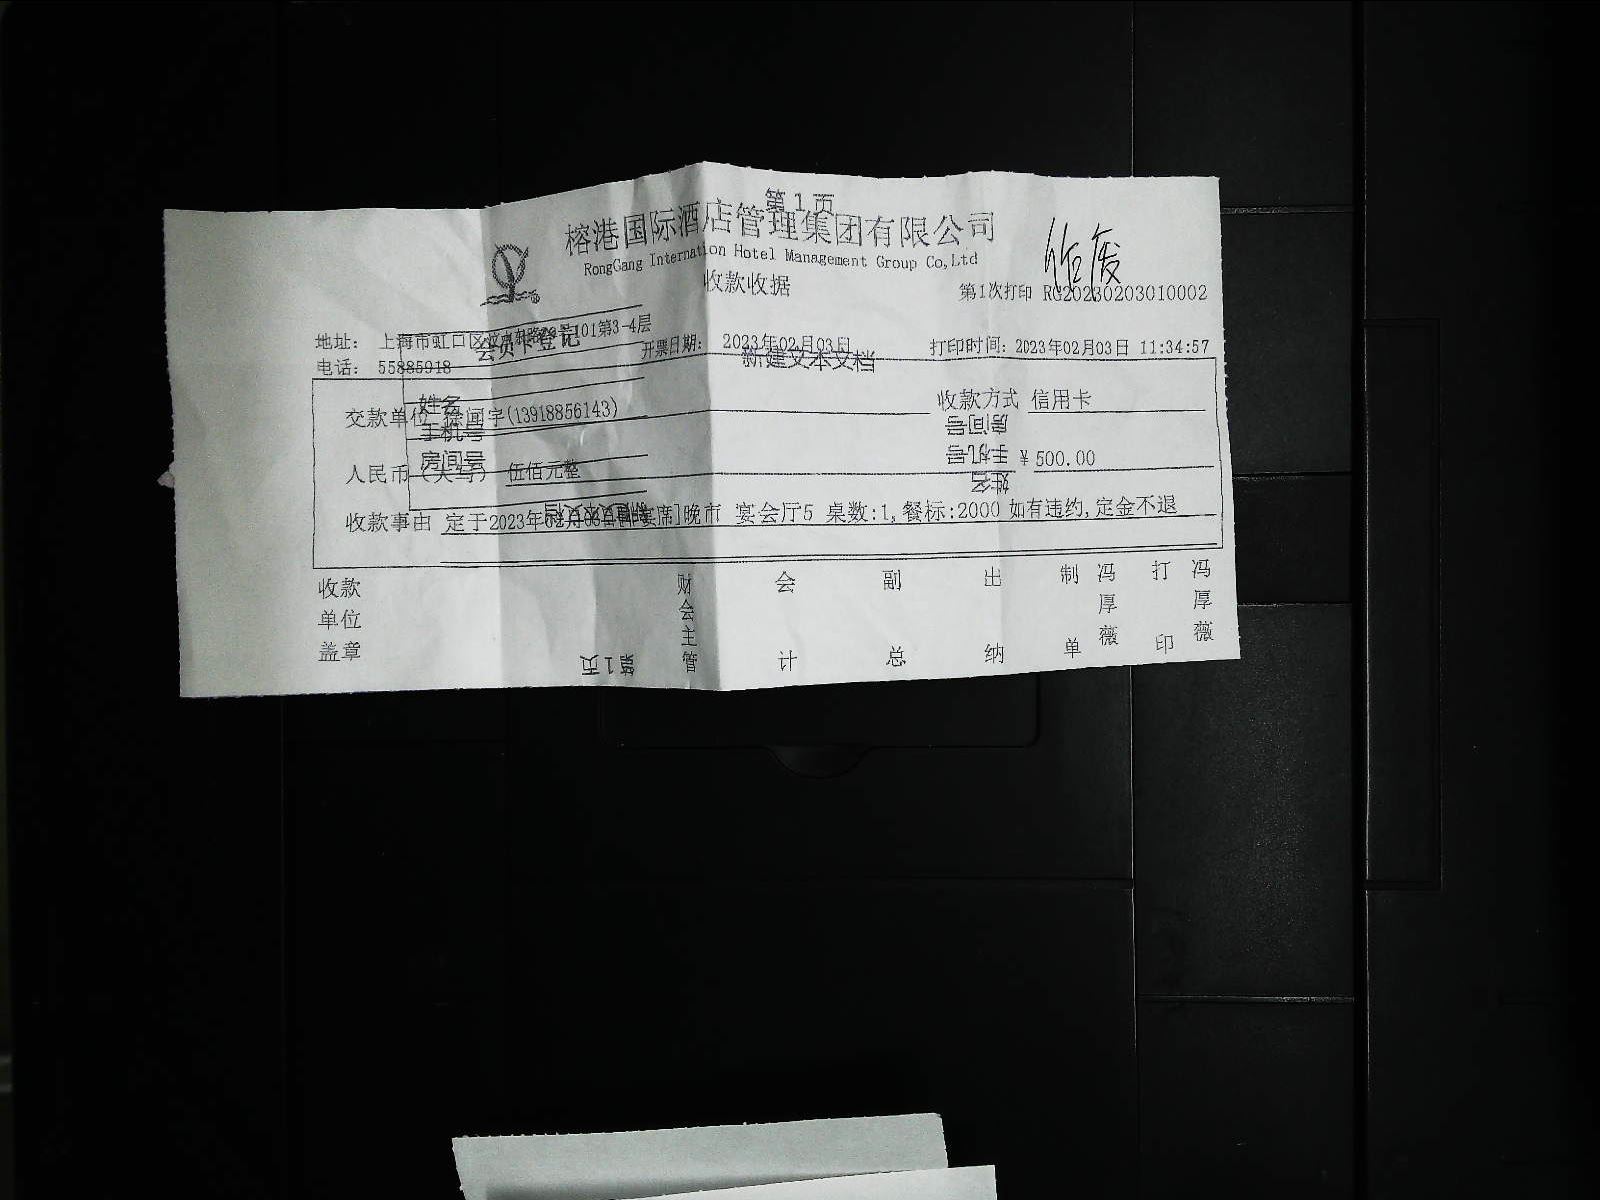 第1页
榕港国际酒店管理集团有限公司
RongGang Internation Hotel Management Group Co,Ltd
收款收据
第1次打印 RG20230203010002
地址： 上海市虹口区 101第3-4层
会员卡登记
开票日期： 2023年02月03日
打印时间：2023年02月03日 11:34:57
电话： 55885918
新建文本文档
姓名
交款单位 徐闻宇(13918856143)
收款方式 信用卡
手机号
房间号
房间号
手机号
人民币（大写） 伍佰元整
￥500.00
姓名
新建文本文档
收款事由 定于2023年 宴席]晚市 宴会厅5 桌数:1,餐标:2000 如有违约,定金不退
收款单位盖章
财会主管
会计
副总
出纳
制单 冯厚薇
打印 冯厚薇
第1页